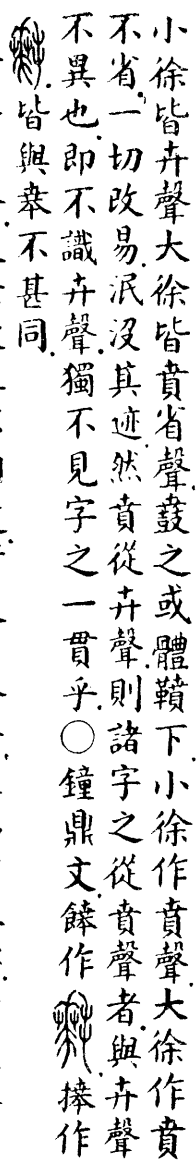 小徐皆卉聲大徐皆賁省聲鼖之或體鞼下小徐作賁聲大徐作賁
不省一切改易泯没其迹然賁從卉聲則諸字之從賁聲者與卉聲
不異也即不識卉聲獨不見字之一貫乎〇鐘鼎文餗作捧作
皆與𠦪不甚同